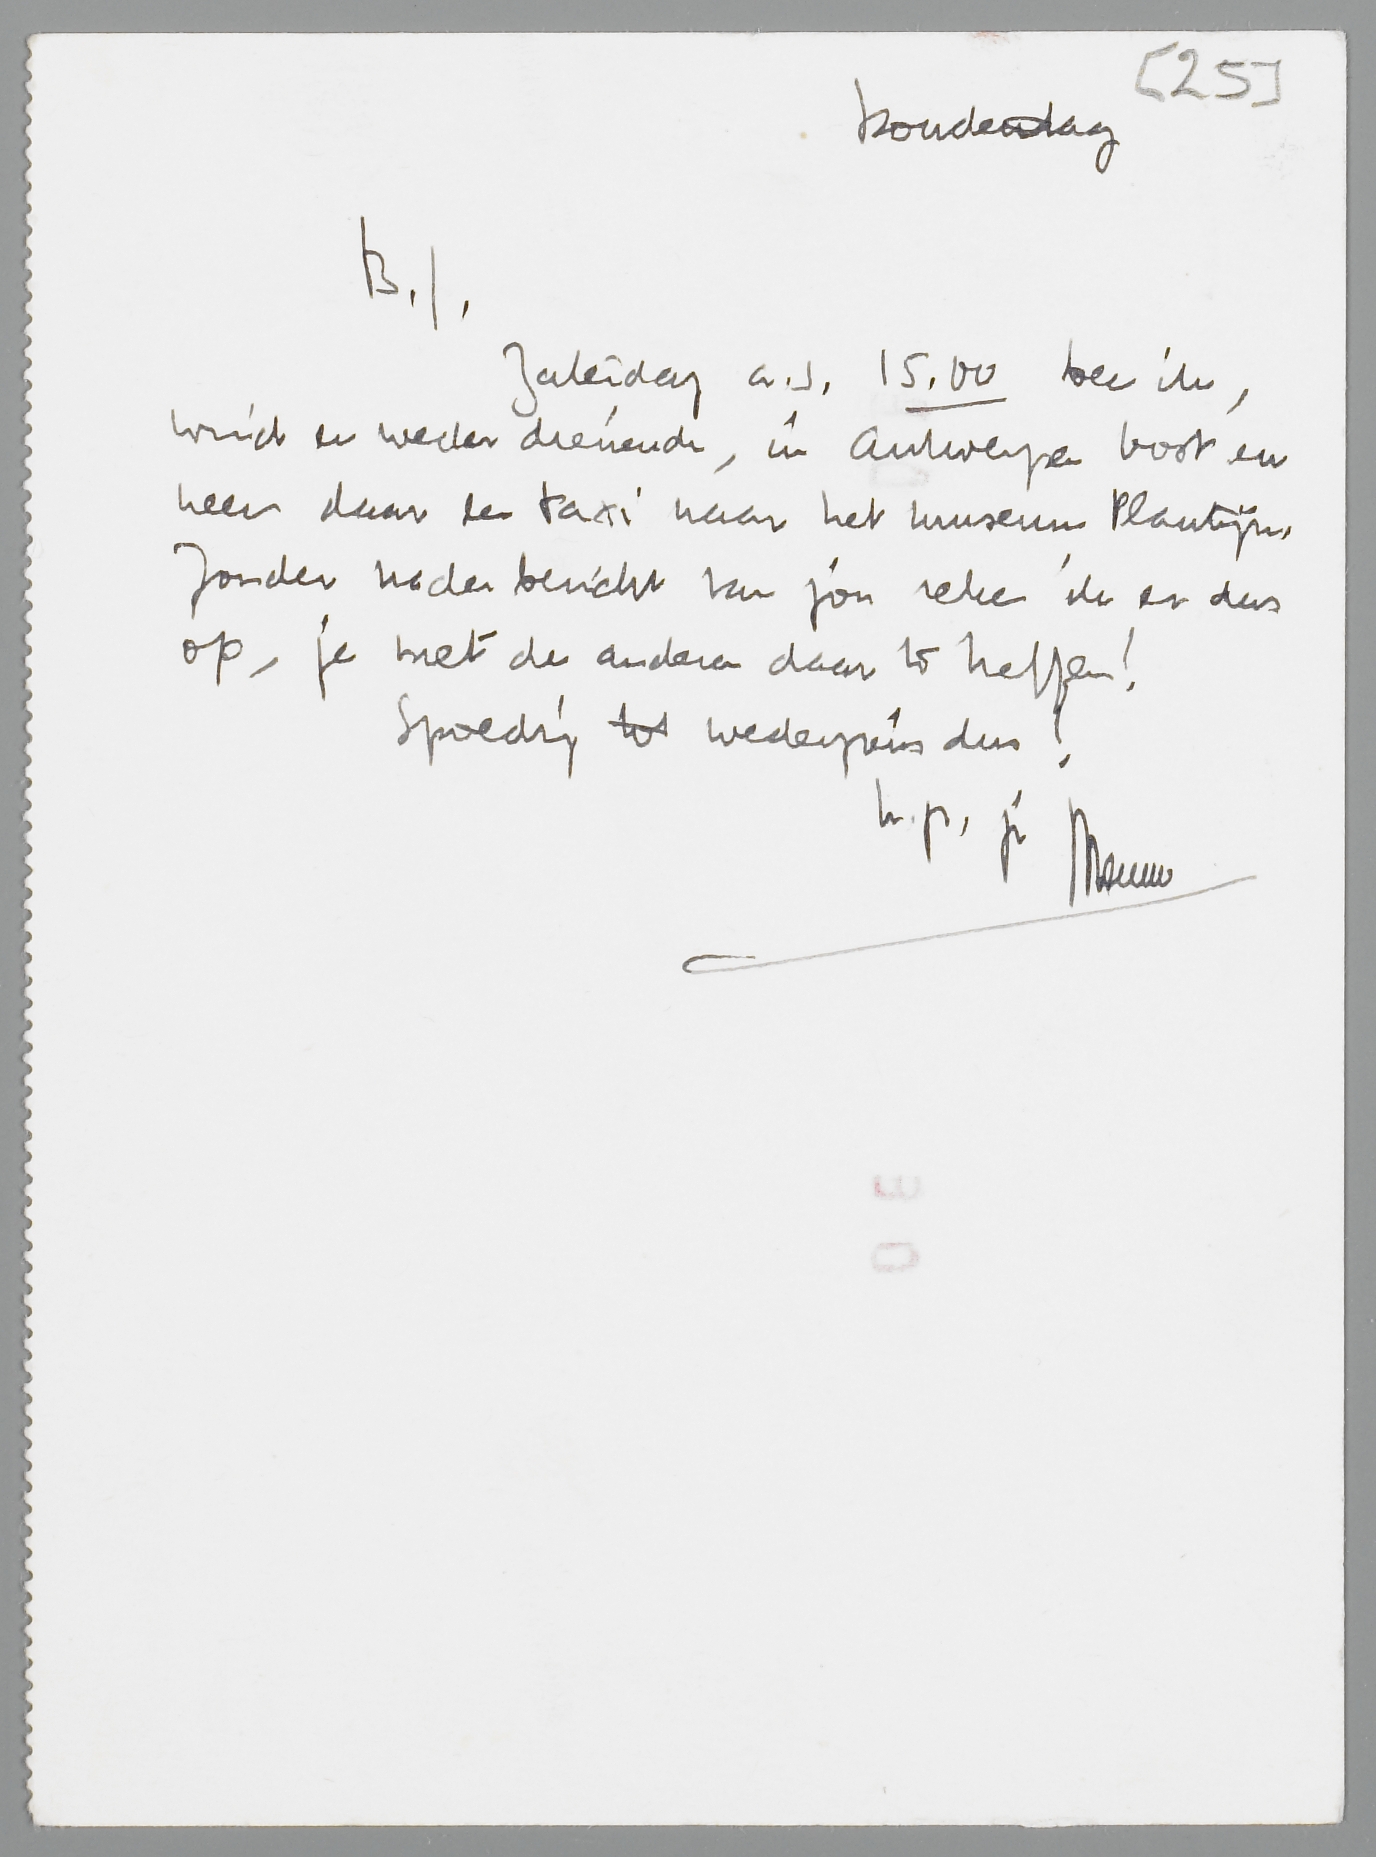 [25]
donderdag
B.J.,
Zaterdag a.s. 15.00 ben ik,
wind en weder dienende, in Antwerpen Oost en
neem daar een taxi naar het museum Plantijn.
Zonder nader bericht van jou reken ik er dus
op, je met de anderen daar te treffen!
Spoedig tot wederziens dus!
h.p., je Menno